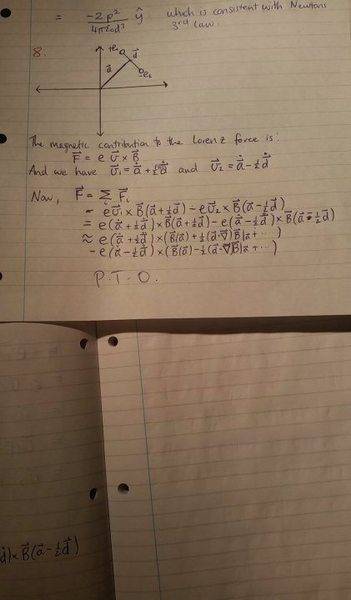 = -2p² / 4πε₀d³ ŷ which is consistent with Newtons
3rd law.
8.
+e d⃗
a⃗ -e
The magnetic contribution to the Lorenz force is:
F⃗ = e v⃗ × B⃗
And we have v⃗₁ = ȧ⃗ + ½ḋ⃗ and v⃗₂ = ȧ⃗ - ½ḋ⃗
Now, F⃗ = Σᵢ F⃗ᵢ
= e v⃗₁ × B⃗(a⃗+½d⃗) - e v⃗₂ × B⃗(a⃗-½d⃗)
= e(ȧ⃗+½ḋ⃗) × B⃗(a⃗+½d⃗) - e(ȧ⃗-½ḋ⃗) × B⃗(a⃗-½d⃗)
≈ e(ȧ⃗+½ḋ⃗) × (B⃗(a⃗) + ½(d⃗·∇)B⃗|a⃗ + ...)
- e(ȧ⃗-½ḋ⃗) × (B⃗(a⃗) - ½(d⃗·∇)B⃗|a⃗ + ...)
P.T.O.
d⃗) × B⃗(a⃗-½d⃗)